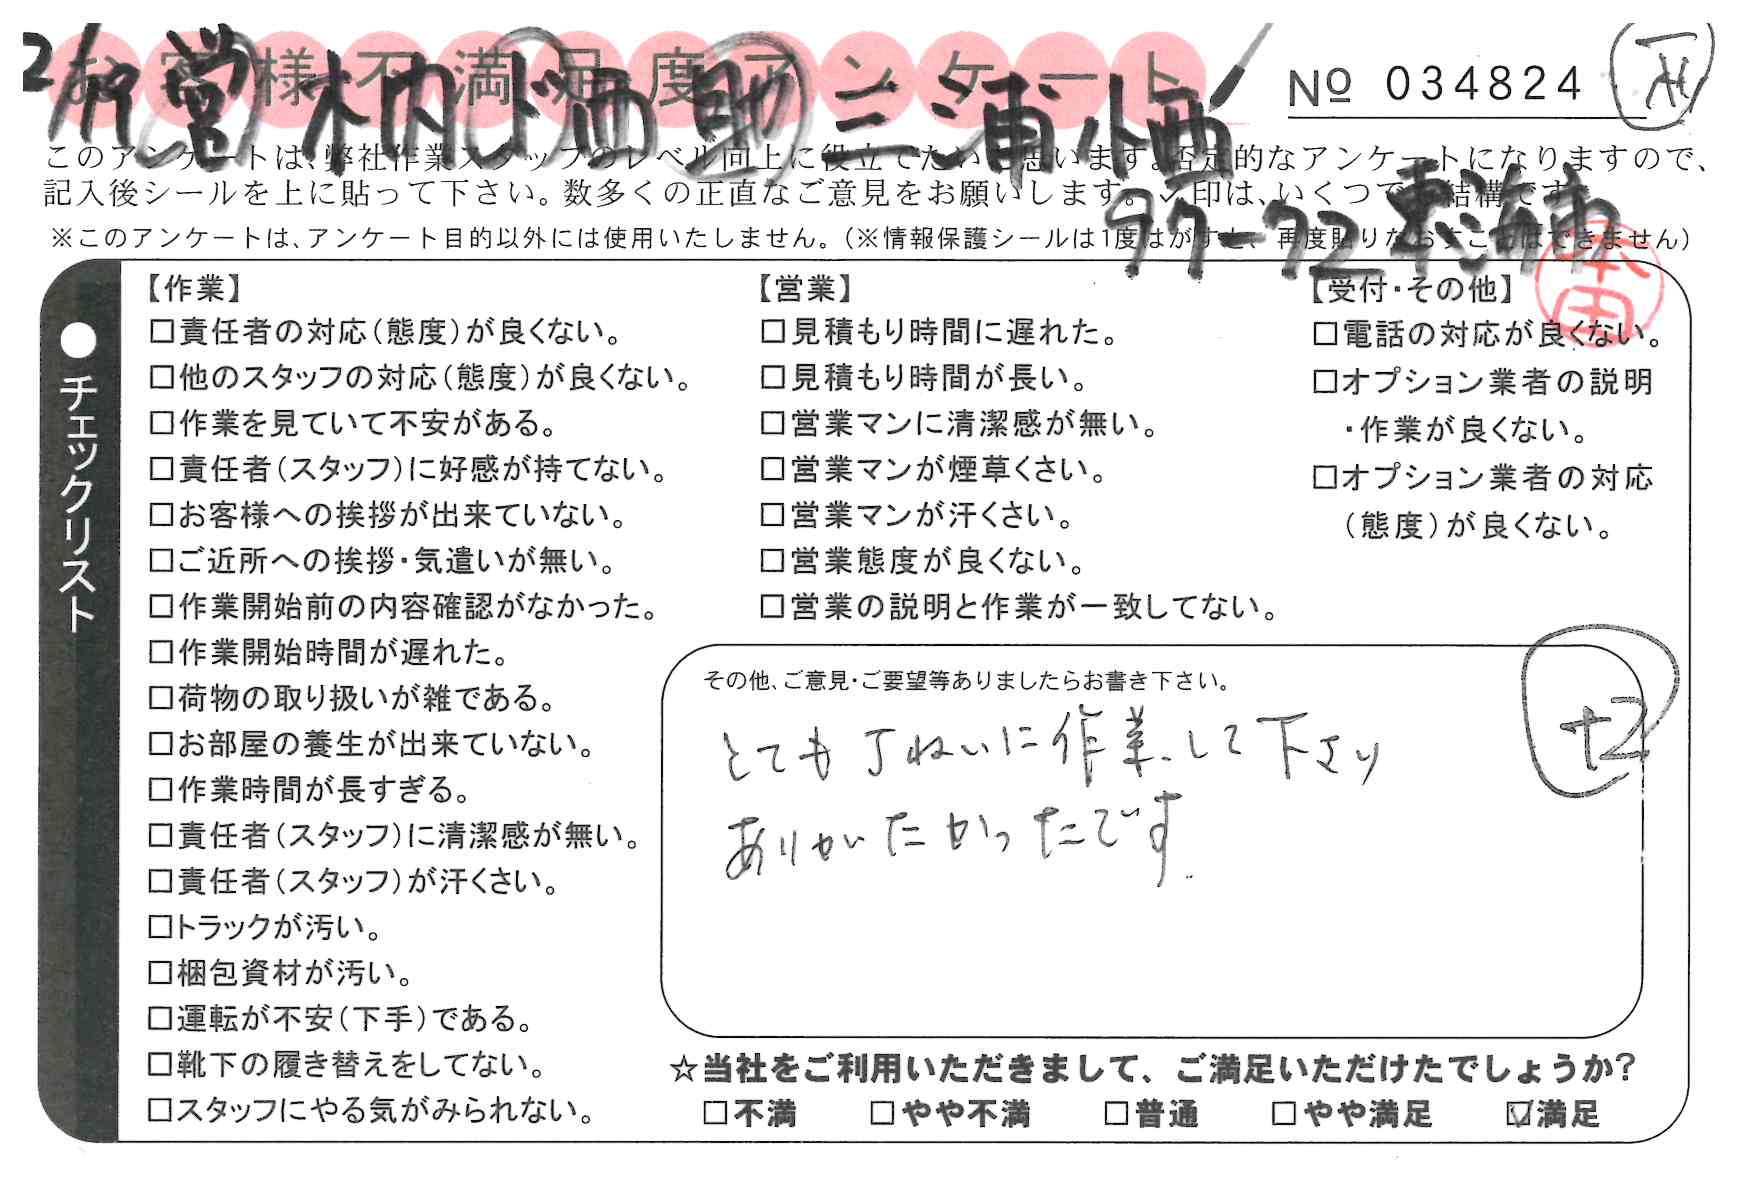 お客様不満足度アンケート
№ 034824
このアンケートは、弊社作業スタッフのレベル向上に役立てたいと思います。否定的なアンケートになりますので、
記入後シールを上に貼って下さい。数多くの正直なご意見をお願いします。✓印は、いくつでも結構です。
※このアンケートは、アンケート目的以外には使用いたしません。(※情報保護シールは1度はがすと、再度貼りなおすことはできません)
97-72
本田
●チェックリスト
【作業】
□責任者の対応(態度)が良くない。
□他のスタッフの対応(態度)が良くない。
□作業を見ていて不安がある。
□責任者(スタッフ)に好感が持てない。
□お客様への挨拶が出来ていない。
□ご近所への挨拶・気遣いが無い。
□作業開始前の内容確認がなかった。
□作業開始時間が遅れた。
□荷物の取り扱いが雑である。
□お部屋の養生が出来ていない。
□作業時間が長すぎる。
□責任者(スタッフ)に清潔感が無い。
□責任者(スタッフ)が汗くさい。
□トラックが汚い。
□梱包資材が汚い。
□運転が不安(下手)である。
□靴下の履き替えをしてない。
□スタッフにやる気がみられない。
【営業】
□見積もり時間に遅れた。
□見積もり時間が長い。
□営業マンに清潔感が無い。
□営業マンが煙草くさい。
□営業マンが汗くさい。
□営業態度が良くない。
□営業の説明と作業が一致してない。
【受付・その他】
□電話の対応が良くない。
□オプション業者の説明
・作業が良くない。
□オプション業者の対応
(態度)が良くない。
その他、ご意見・ご要望等ありましたらお書き下さい。
とても丁ねいに作業して下さり
ありがたかったです
+2
☆当社をご利用いただきまして、ご満足いただけたでしょうか?
□不満 □やや不満 □普通 □やや満足 ☑満足